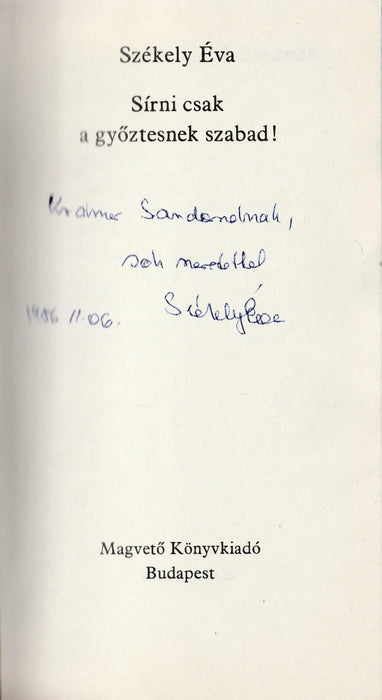 Székely Éva
Sírni csak
a győztesnek szabad!
Kramer Sandornak,
sok szeretettel
Székely Éva
1986 11. 06.
Magvető Könyvkiadó
Budapest